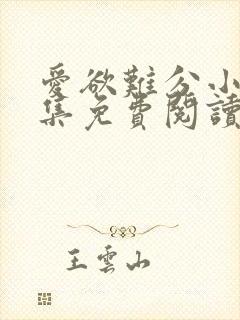 愛欲難分小
集免費閱讀
王雲山